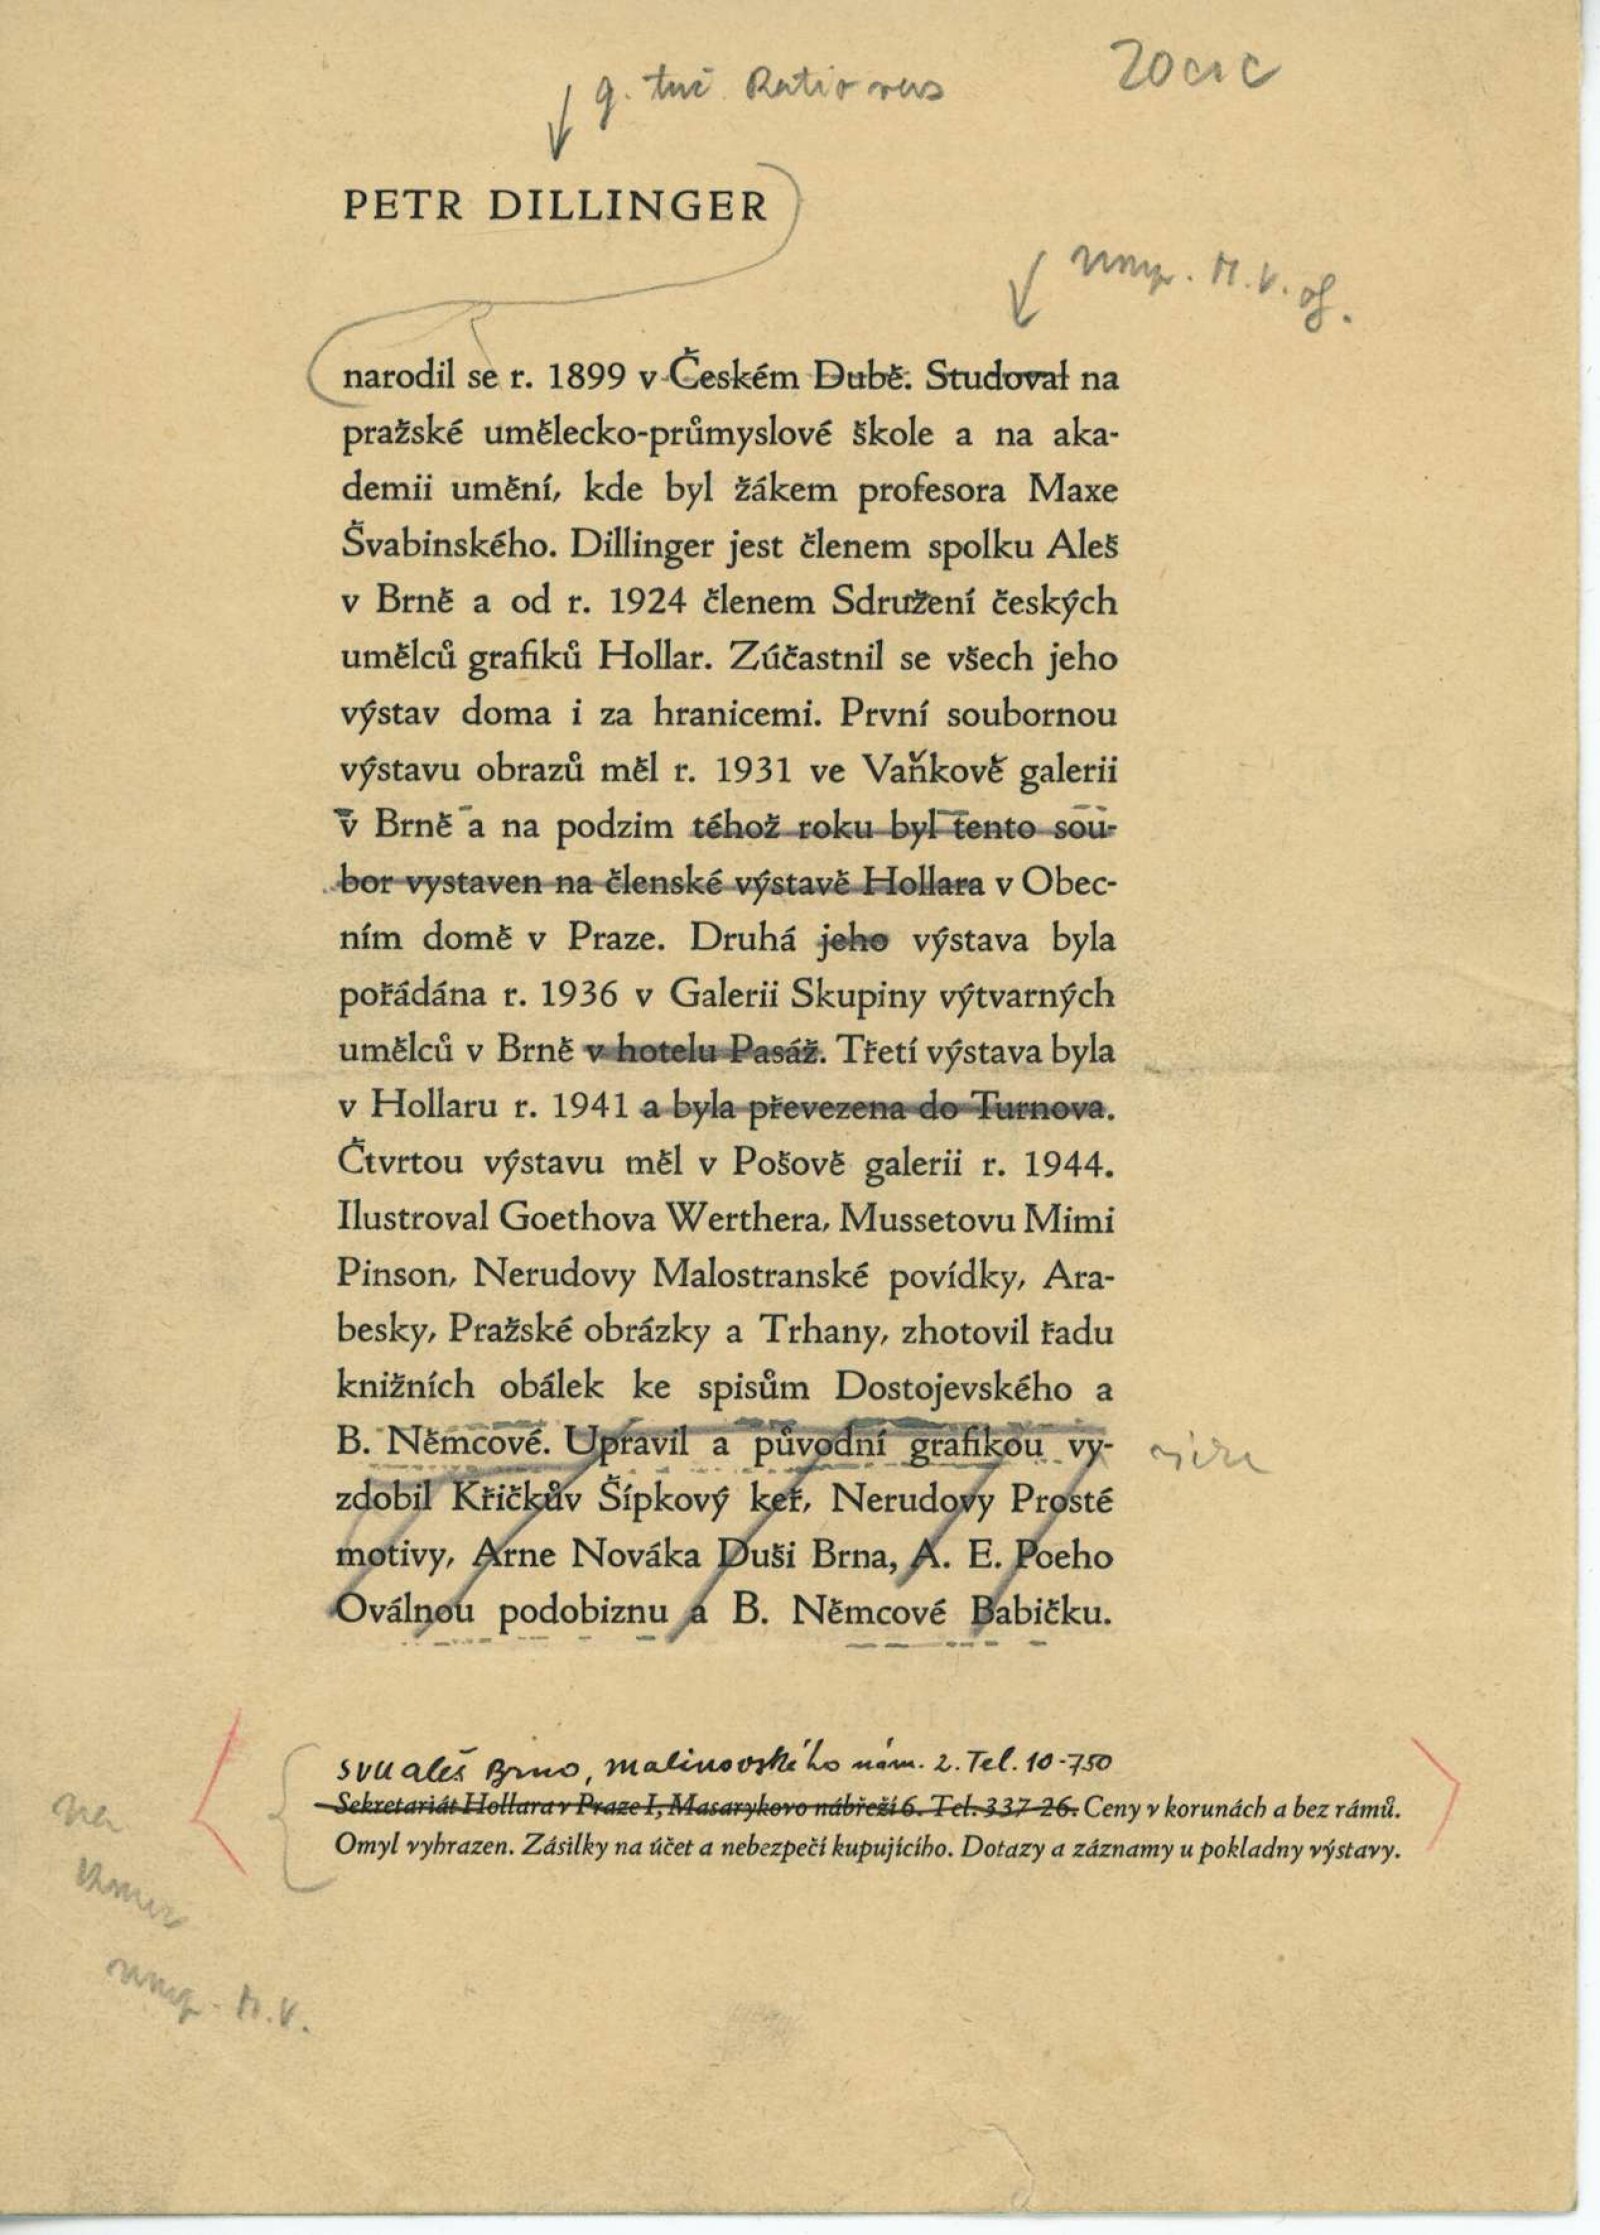 PETR DILLINGER
narodil se r. 1899 v Českém Dubě. Studoval na
pražské umělecko-průmyslové škole a na aka-
demii umění, kde byl žákem profesora Maxe
Švabinského. Dillinger jest členem spolku Aleš
v Brně a od r. 1924 členem Sdružení českých
umělců grafiků Hollar. Zúčastnil se všech jeho
výstav doma i za hranicemi. První soubornou
výstavu obrazů měl r. 1931 ve Vaňkově galerii
v Brně a na podzim téhož roku byl tento sou-
bor vystaven na členské výstavě Hollara v Obec-
ním domě v Praze. Druhá jeho výstava byla
pořádána r. 1936 v Galerii Skupiny výtvarných
umělců v Brně v hotelu Pasáž. Třetí výstava byla
v Hollaru r. 1941 a byla převezena do Turnova.
Čtvrtou výstavu měl v Pošově galerii r. 1944.
Ilustroval Goethova Werthera, Mussetovu Mimi
Pinson, Nerudovy Malostranské povídky, Ara-
besky, Pražské obrázky a Trhany, zhotovil řadu
knižních obálek ke spisům Dostojevského a
B. Němcové. Upravil a původní grafikou vy-
zdobil Křičkův Šípkový keř, Nerudovy Prosté
motivy, Arne Nováka Duši Brna, A. E. Poeho
Oválnou podobiznu a B. Němcové Babičku.
SVU aleš Brno, Malinovského nám. 2. Tel. 10-750
Sekretariát Hollara v Praze I, Masarykovo nábřeží 6. Tel. 337-26. Ceny v korunách a bez rámů.
Omyl vyhrazen. Zásilky na účet a nebezpečí kupujícího. Dotazy a záznamy u pokladny výstavy.